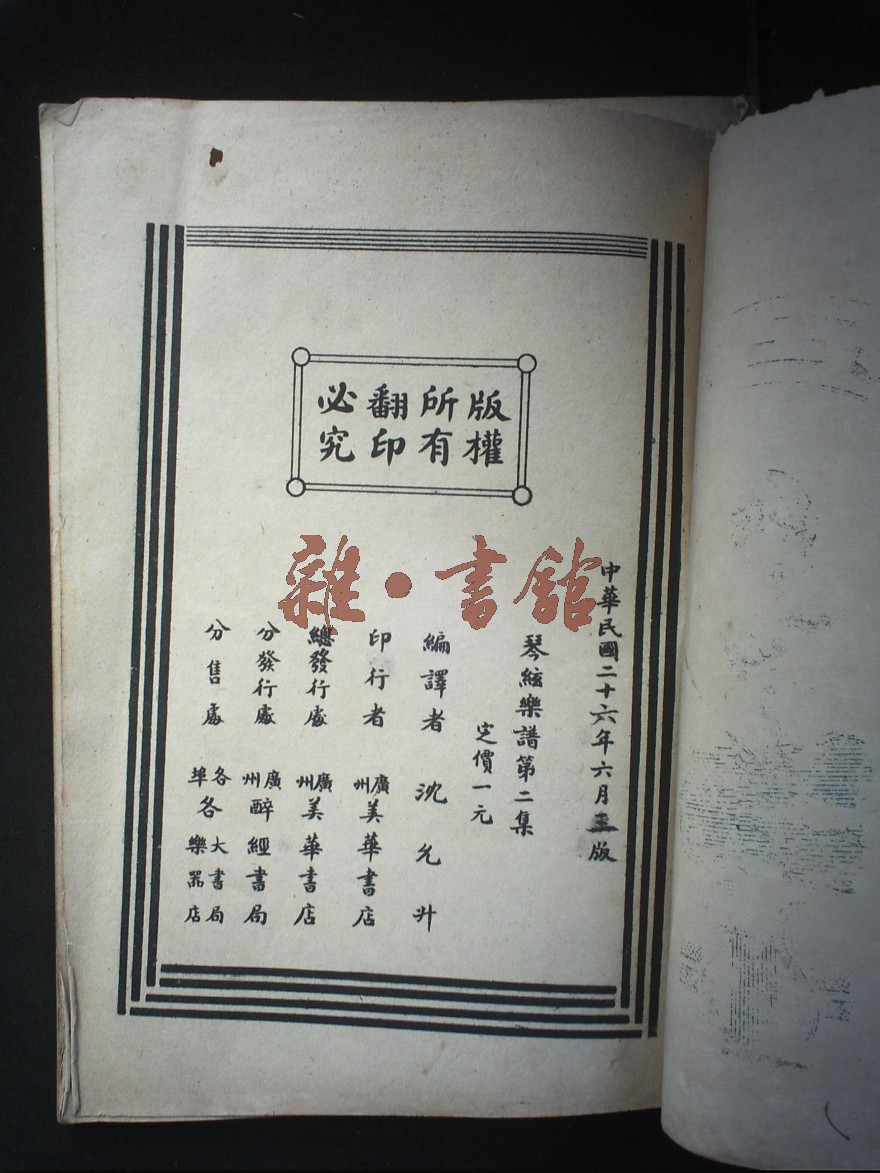 版權
所有
翻印
必究
雜·書館
中華民國二十六年六月三版
琴絃樂譜第二集
定價一元
編譯者 沈允升
印行者 廣州美華書店
總發行處 廣州美華書店
分發行處 廣州醉經書局
分售處 各埠各大書局樂器店